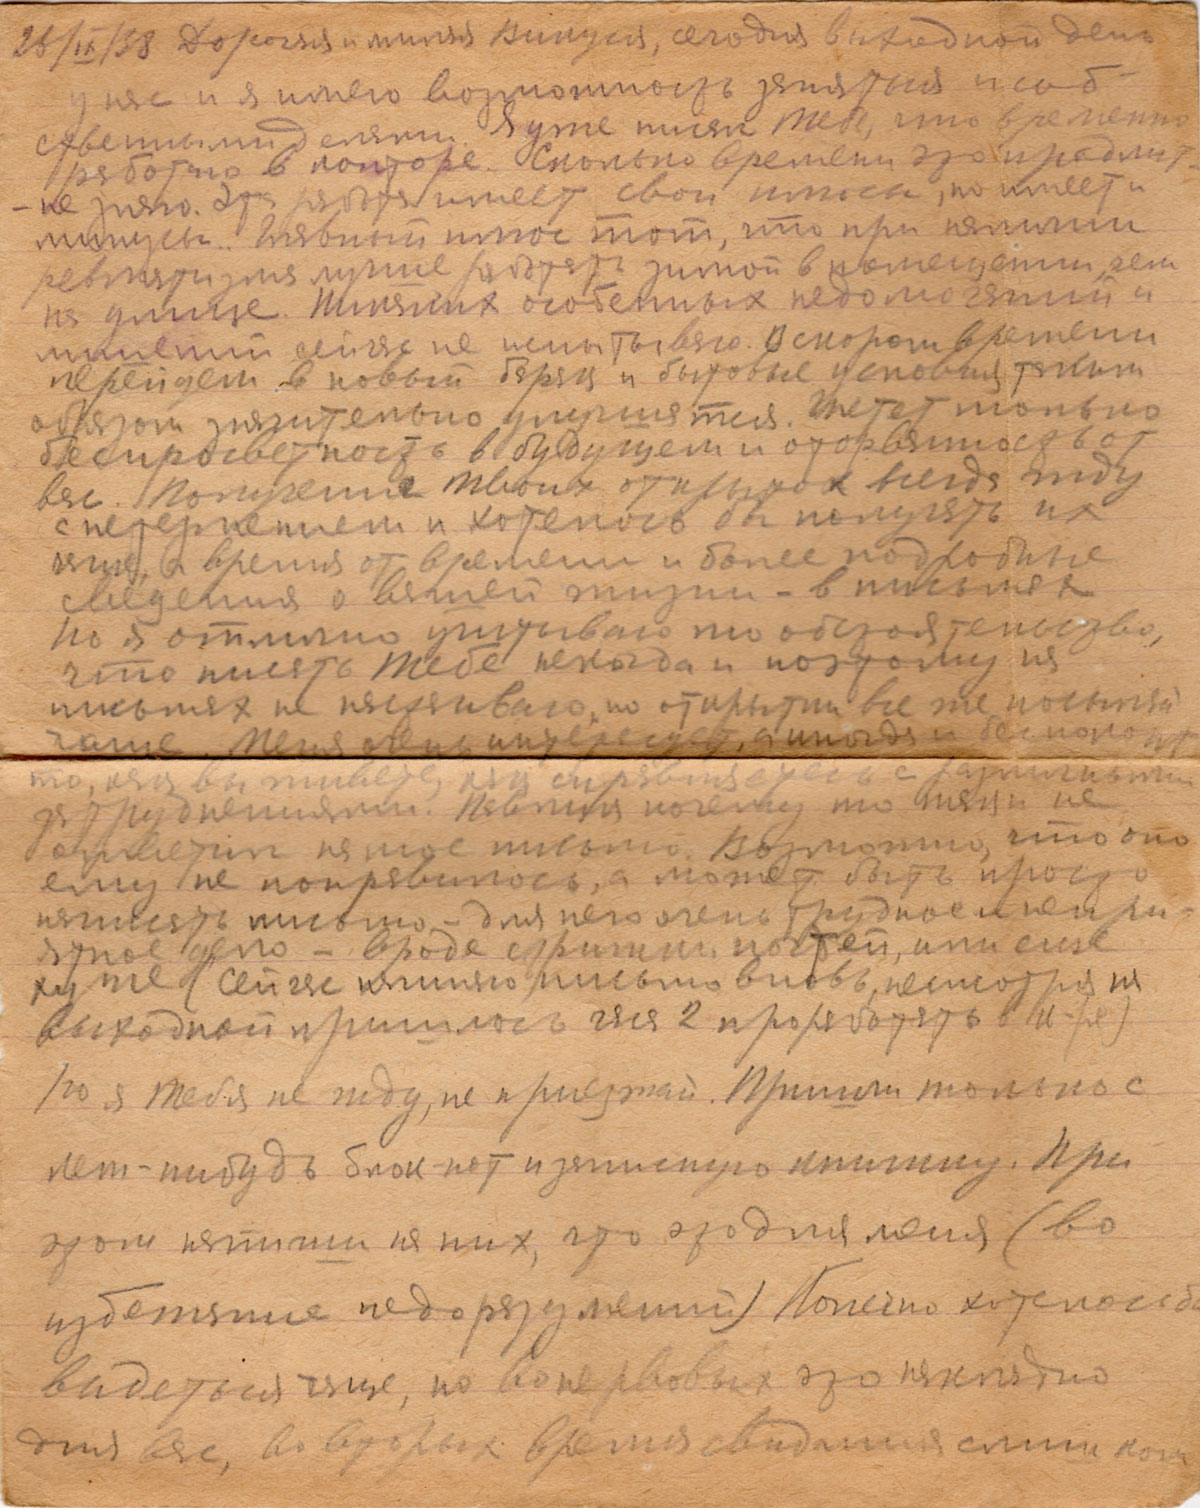 26/IX/38 Дорогая и милая Викуся, сегодня выходной день
у нас и я имею возможность заняться и соб-
ственными делами. Я уже писал тебе, что временно
работаю в конторе. Сколько времени это продлит.
- не знаю. Эта работа имеет свои плюсы, но имеет и
минусы. Главный плюс тот, что при наличии
ревматизма лучше работать зимой в помещении, чем
на улице. Никаких особенных недомоганий и
лишений сейчас не испытываю. В скором времени
перейдем в новый барак и бытовые условия таким
образом значительно улучшатся. Гнетет только
беспросветность в будущем и оторванность от
вас. Получение твоих открыток всегда жду
с нетерпением и хотелось бы получать их
чаще, а время от времени и более подробные
сведения о вашей жизни - в письмах
Но я отлично учитываю то обстоятельство,
что писать тебе некогда и поэтому на
письмах не настаиваю, но открытки все же посылай
чаще. Меня очень интересует, а иногда и беспокоит
то, как вы живете, как справляетесь с различными
затруднениями. Павлик почему то так и не
ответил на мое письмо. Возможно, что оно
ему не понравилось, а может быть просто
написать письмо - для него очень трудное и непри-
ятное дело - вроде стрижки ногтей, или еще
хуже (Сейчас начинаю письмо вновь, несмотря на
выходной пришлось часа 2 проработать в к-ре)
Но я тебя не жду, не приезжай. Пришли только с
кем-нибудь блок-нот и записную книжку. При
этом напиши на них, что это для меня (во
избежание недоразумений) Конечно хотелось бы
видеться чаще, но во первых это накладно
для вас, во вторых время свидания слишком